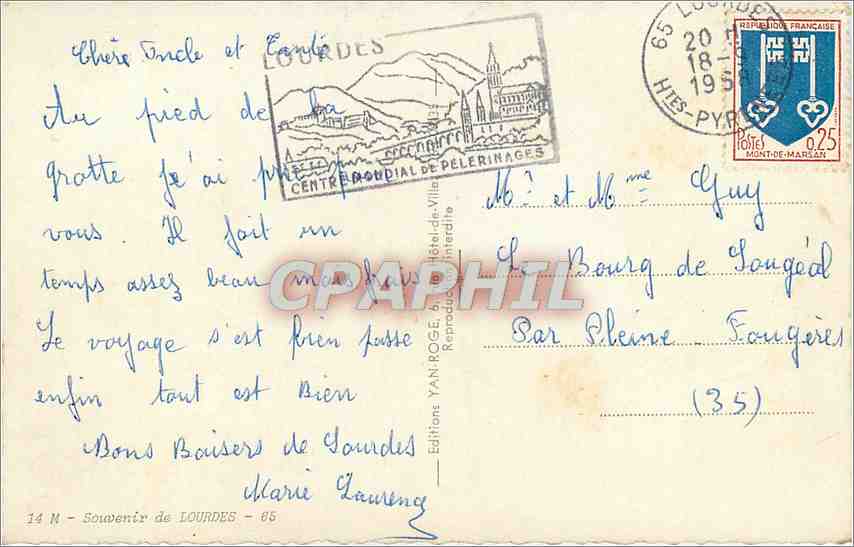 Chère Oncle et Tante
Au pied de la
grotte j'ai prié pour
vous. Il fait un
temps assez beau mais frais
Le voyage s'est bien passe
enfin tout est Bien
Bons Baisers de Lourdes
Marie Laurence
14 M - Souvenir de LOURDES - 65
LOURDES
CENTRE MONDIAL DE PÈLERINAGES
Editions YAN-ROGE, 6, Hôtel-de-Ville
Reproduction interdite
65 LOURDES
20 H
18-9
196
HTES-PYRENEES
REPUBLIQUE FRANÇAISE
POSTES 0,25
MONT-DE-MARSAN
Mr et Mme Guy
Le Bourg de Sougéal
Par Pleine-Fougères
(35)
CPAPHIL